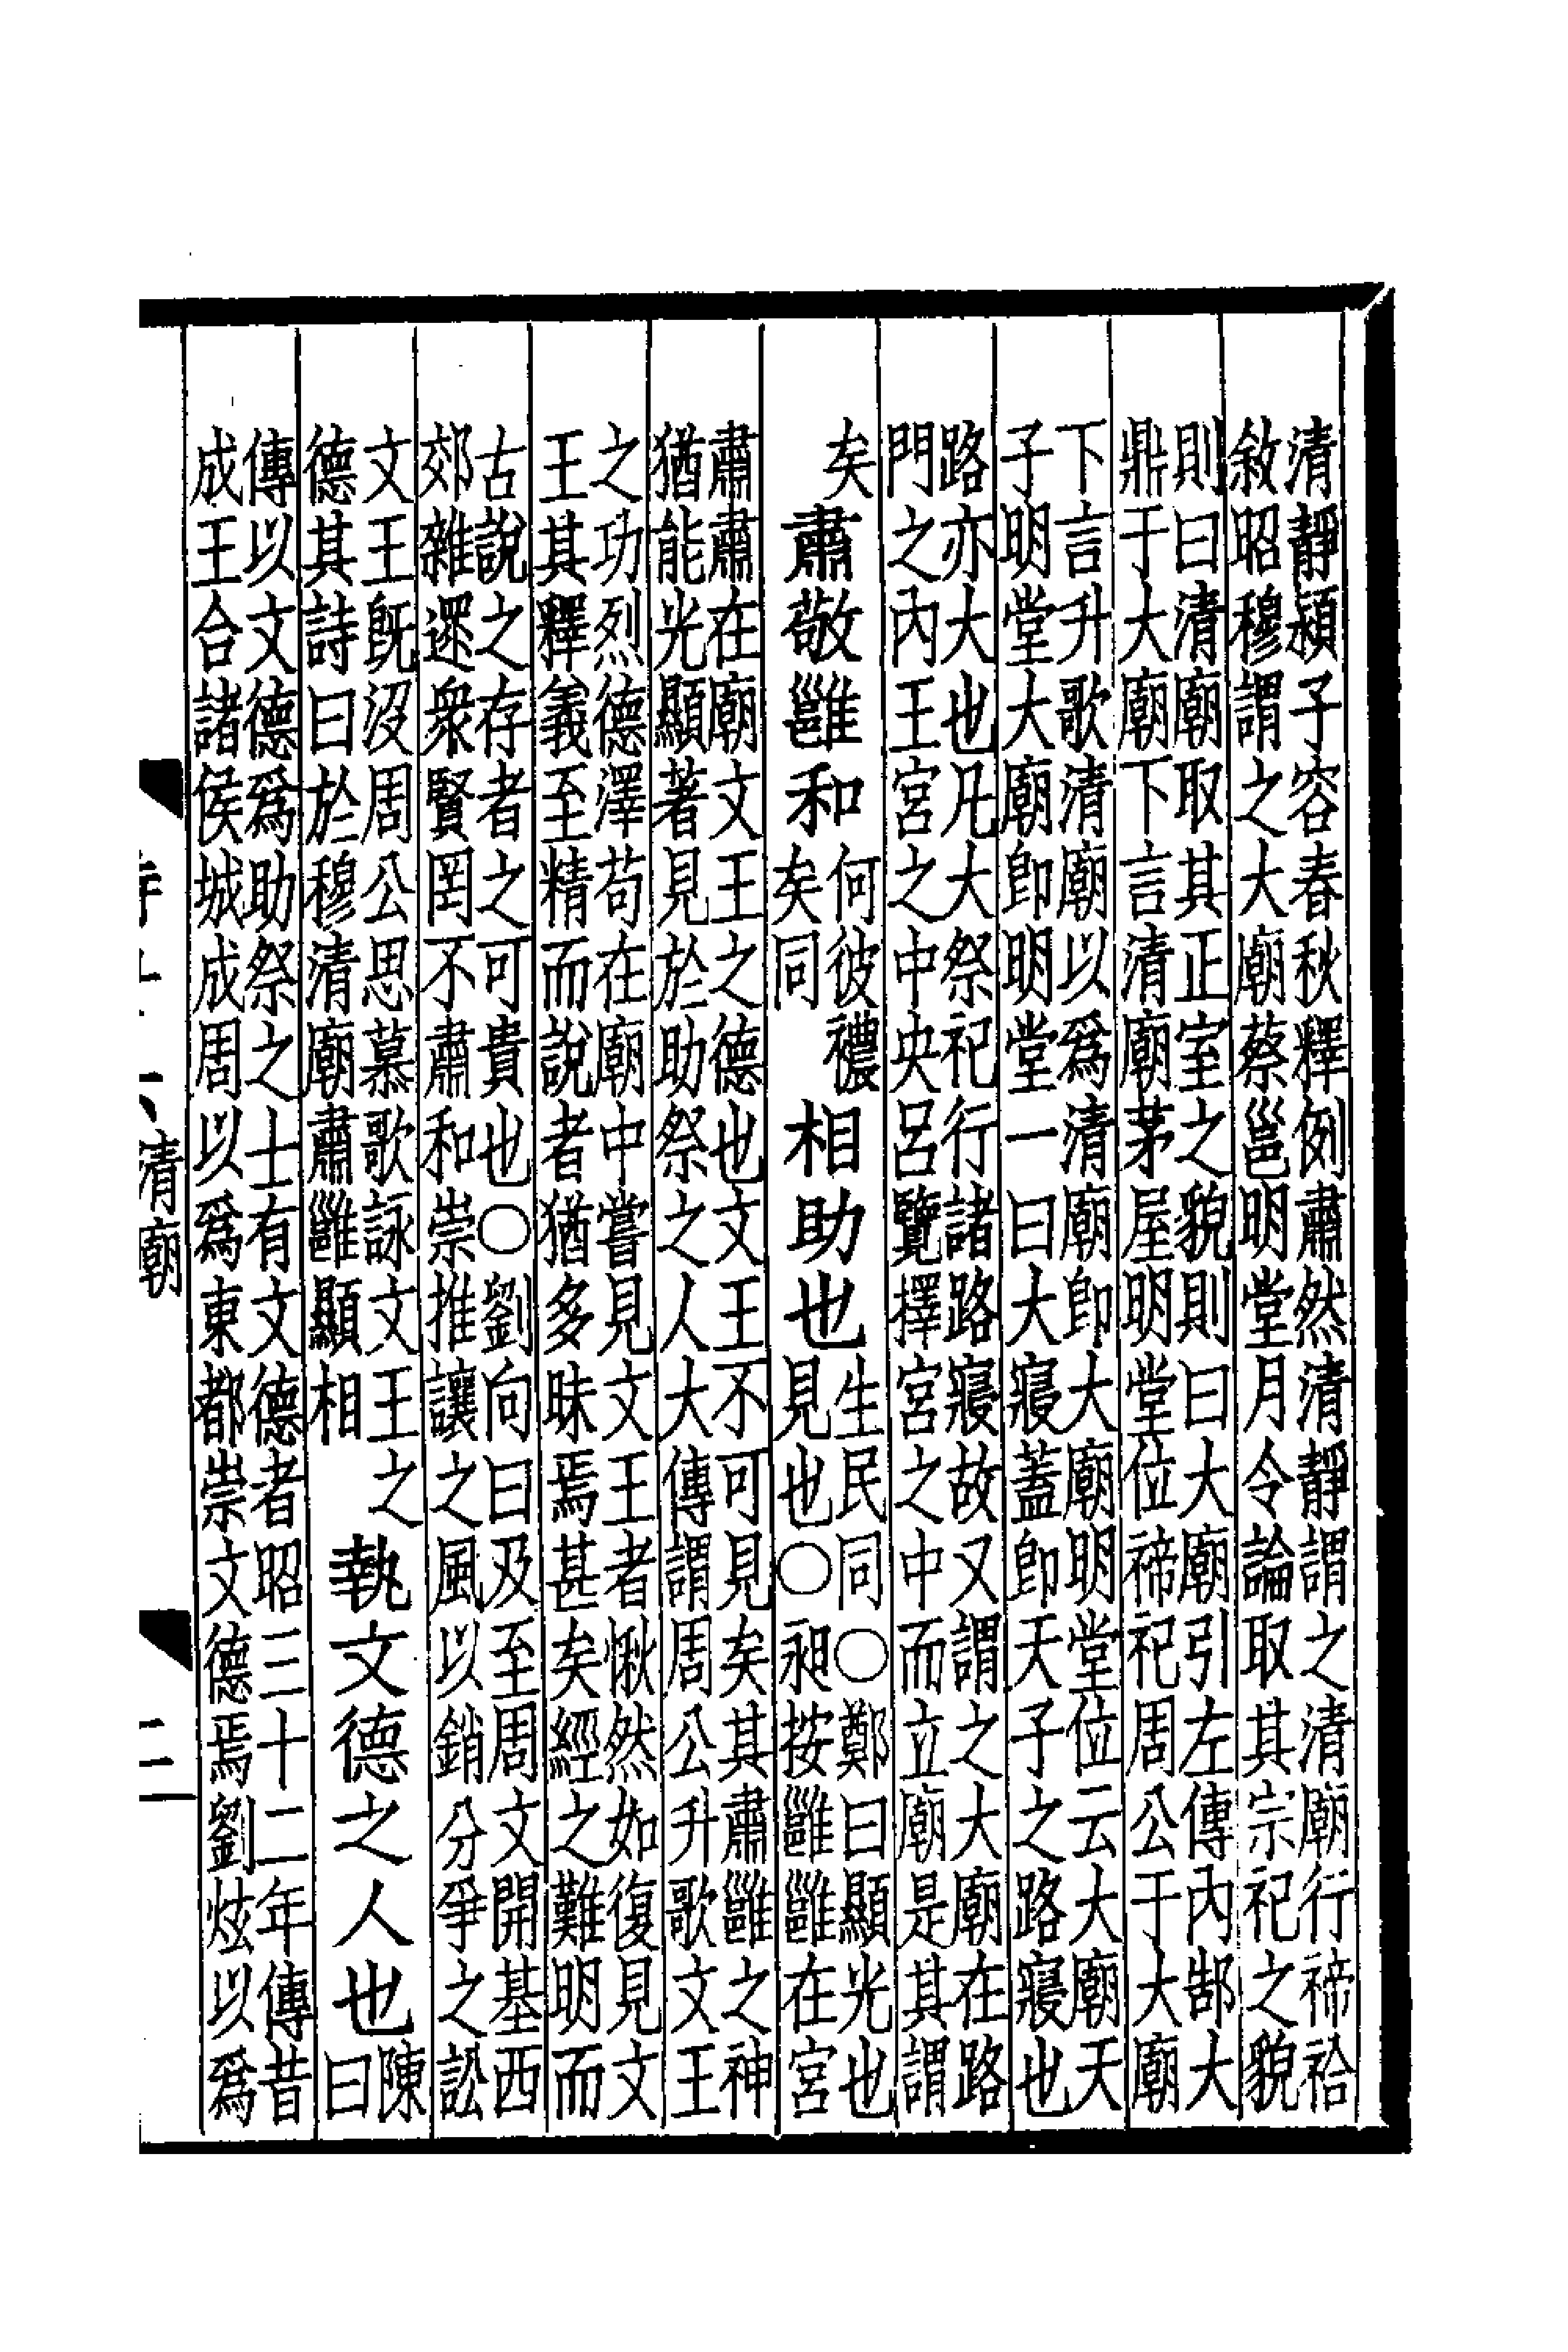 清靜潁子容春秋釋例肅然清靜謂之清廟行禘祫
敘昭穆謂之大廟蔡邕明堂月令論取其宗祀之貌
則曰清廟取其正室之貌則曰大廟引左傳內郜大
鼎于大廟下言清廟茅屋明堂位禘祀周公于大廟
下言升歌清廟以爲清廟卽大廟明堂位云大廟天
子明堂大廟卽明堂一曰大寢蓋卽天子之路寢也
路亦大也凡大祭祀行諸路寢故又謂之大廟在路
門之內王宮之中央呂覽擇宮之中而立廟是其謂
矣
肅敬雝和
何彼襛
矣同
相助也
生民同○鄭曰顯光也
見也○昶按雝雝在宮
肅肅在廟文王之德也文王不可見矣其肅雝之神
猶能光顯著見於助祭之人大傳謂周公升歌文王
之功烈德澤苟在廟中嘗見文王者愀然如復見文
王其釋義至精而說者猶多昧焉甚矣經之難明而
古說之存者之可貴也○劉向曰及至周文開基西
郊雜遝衆賢罔不肅和崇推讓之風以銷分爭之訟
文王旣沒周公思慕歌詠文王之
德其詩曰於穆清廟肅雝顯相
執文德之人也
陳
曰
傳以文德爲助祭之士有文德者昭三十二年傳昔
成王合諸侯城成周以爲東都崇文德焉劉炫以爲
清廟
二